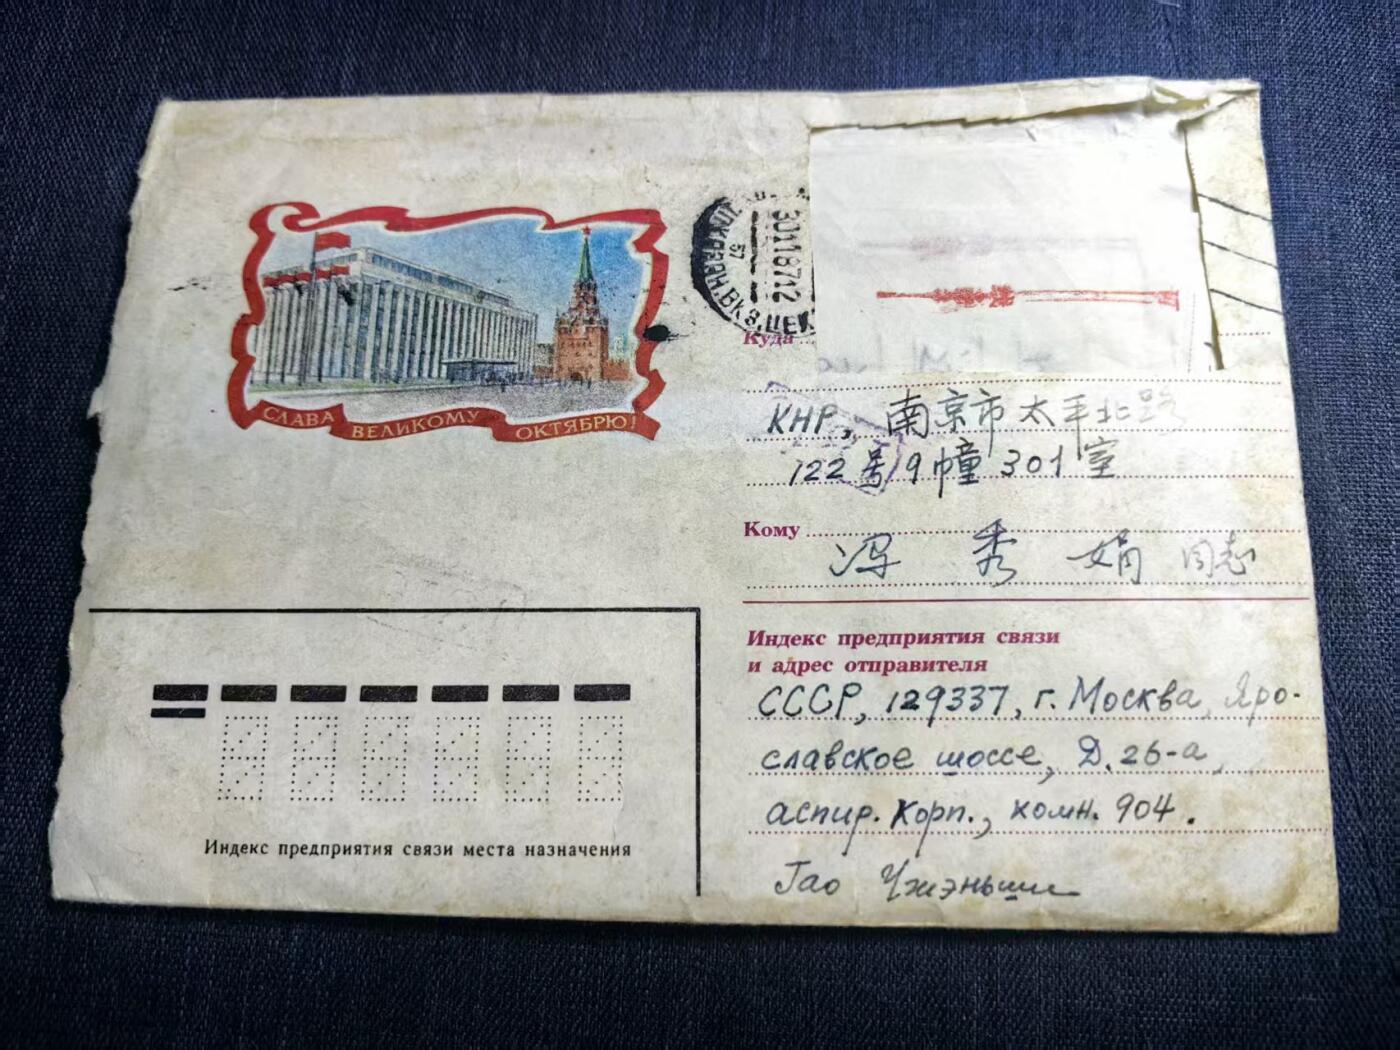 СЛАВА ВЕЛИКОМУ ОКТЯБРЮ!
30118712
57
Куда
КНР, 南京市太平北路
122号9幢301室
Кому
冯秀娟同志
Индекс предприятия связи
и адрес отправителя
СССР, 129337, г. Москва, Яро-
славское шоссе, Д. 26-а,
аспир. корп., комн. 904.
Гао Чжэньши
Индекс предприятия связи места назначения